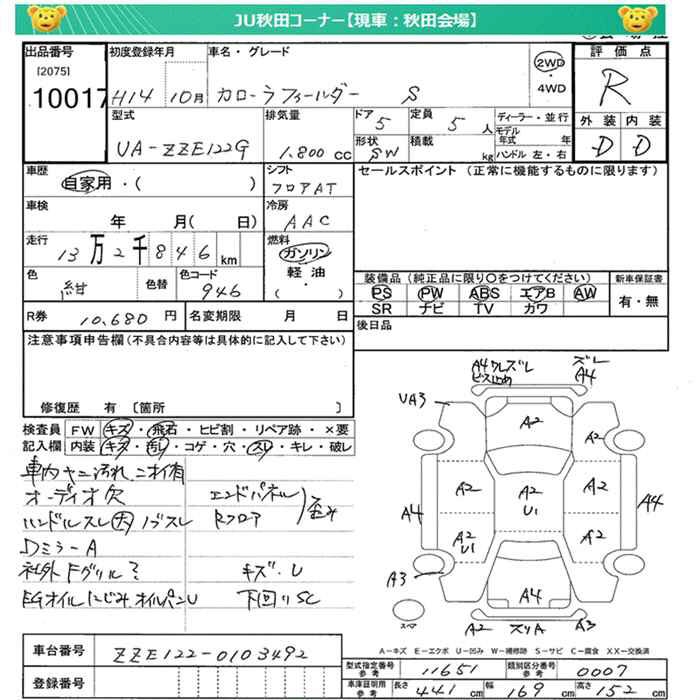 JU秋田コーナー【現車：秋田会場】
出品番号 初度登録年月 車名・グレード 評価点
[2075]
10017 H14 10月 カローラフィールダー S 2WD・4WD R
型式 排気量 ドア 定員 ディーラー・並行 外装 内装
UA-ZZE122G 1.800 cc 5 5人 モデル年式 年 D D
形状 積載
SW kg ハンドル 左・右
車歴 シフト セールスポイント（正常に機能するものに限ります）
自家用・( ) フロアAT
車検 冷房
年 月( 日) AAC
走行 燃料
13万2千846km ガソリン
軽油・( )
色 色替 色コード 装備品（純正品に限り〇をつけてください） 新車保証書
紺 946 PS PW ABS エアB AW 有・無
SR ナビ TV カワ
R券 10,680円 名変期限 月 日 後日品
注意事項申告欄（不具合内容等は具体的に記入して下さい）
修復歴 有 〔箇所 〕
検査員記入欄 FW キズ・飛石・ヒビ割・リペア跡・×要
内装 キズ・汚れ・コゲ・穴・スレ・キレ・破レ
車内ヤニ汚れ、ニオイ有
オーディオ欠 エンドパネル
ハンドルスレ大 ノブスレ Rフロア 歪み
DミラーA
社外Fグリル? キズ・U
EGオイルにじみ オイルパンU 下回りSC
A4 ワレズレ ズレ
ビス止め A4
UA3
A2
A2
A2 A2 A2
U1
A4 A4
A2 A2
U1
A3
A4
スペア A2 ズリA A3
A－キズ E－エクボ U－凹み W－補修跡 S－サビ C－腐食 XX－交換済
車台番号 ZZE122-0103492
型式指定番号 参考 11651 類別区分番号 参考 0007
登録番号 車庫証明用 参考 長さ 441 cm 幅 169 cm 高さ 152 cm